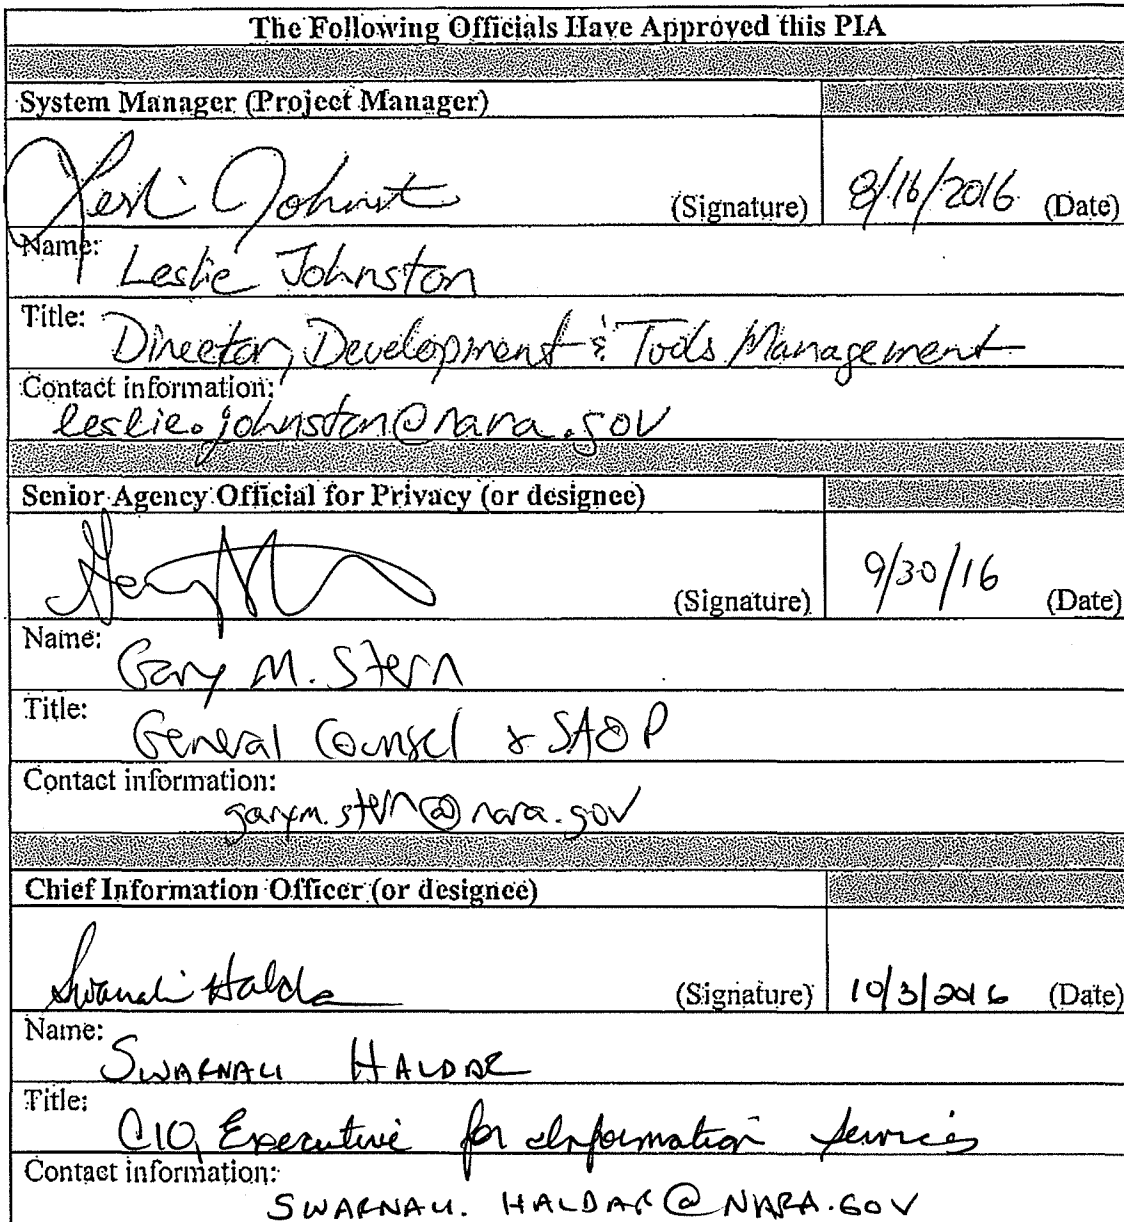 The Following Officials Have Approved this PIA
System Manager (Project Manager)
Lesli Johnst (Signature) 8/16/2016 (Date)
Name: Leslie Johnston
Title: Director, Development & Tools Management
Contact information:
leslie.johnston@nara.gov
Senior Agency Official for Privacy (or designee)
(Signature) 9/30/16 (Date)
Name: Gary M. Stern
Title: General Counsel & SAOP
Contact information:
garym.stern@nara.gov
Chief Information Officer (or designee)
Swarnali Halda (Signature) 10/3/2016 (Date)
Name: SWARNALI HALDAR
Title: CIO, Executive for Information Services
Contact information:
SWARNALI.HALDAR@NARA.GOV